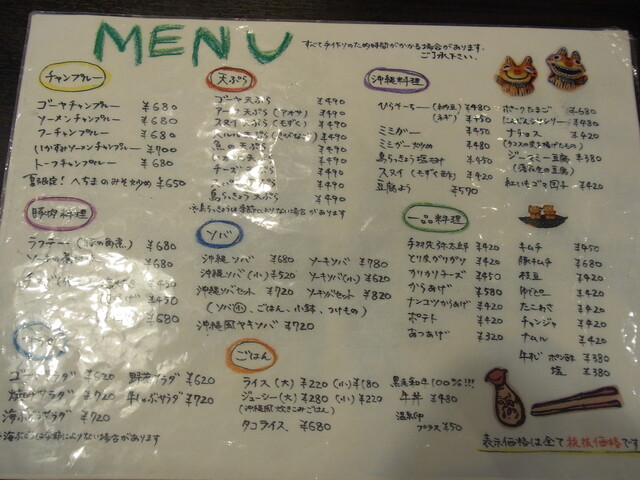 MENU
すべて手作りのため時間がかかる場合があります。
ご了承下さい。
チャンプルー
ゴーヤチャンプルー ¥680
ソーメンチャンプルー ¥680
フーチャンプルー ¥680
いかすみソーメンチャンプルー ¥700
トーフチャンプルー ¥680
夏限定! へちまのみそ炒め ¥650
天ぷら
ゴーヤ天ぷら ¥490
アーサ天ぷら(アオサ) ¥490
スヌイ天ぷら(もずく) ¥490
¥490
魚の天ぷら ¥490
¥490
¥490
¥490
島らっきょう天ぷら ¥490
沖縄料理
ひらやーちー (納豆) ¥480
(ネギ) ¥450
ミミガー ¥450
ミミガー炒め ¥480
島らっきょう塩づけ ¥450
スヌイ(もずく酢) ¥420
豆腐よう ¥590
ポークたまご ¥680
にんじんシリシリー ¥480
ナチョス ¥420
(タコスの皮を揚げたもの)
ジーマミー豆腐 ¥380
(落花生の豆腐)
紅いもゴマ団子 ¥420
豚肉料理
ラフテー ¥680
¥680
¥450
¥450
¥680
ソバ
沖縄ソバ ¥680 ソーキソバ ¥780
沖縄ソバ(小) ¥520 ソーキソバ(小) ¥620
沖縄ソバセット ¥720 ソーキソバセット ¥820
(ソバ小、ごはん、小鉢、つけもの)
沖縄風ヤキソバ ¥720
一品料理
¥420
とり皮がりがり ¥420
カリカリチーズ ¥450
からあげ ¥580
ナンコツからあげ ¥420
ポテト ¥420
あつあげ ¥320
キムチ ¥450
豚キムチ ¥680
枝豆 ¥420
ゆでピー ¥420
たこわさ ¥420
チャンジャ ¥420
ナムル ¥420
ポン酢 ¥380
塩 ¥380
サラダ ¥620 野菜サラダ ¥620
サラダ ¥720 牛しゃぶサラダ ¥720
海ぶどうサラダ ¥720
ごはん
ライス(大) ¥220 (小) ¥180
ジューシー(大) ¥280 (小) ¥220
(沖縄風炊きこみごはん)
タコライス ¥680
黒毛和牛100%!!!
牛丼 ¥480
温泉卵
プラス ¥50
表示価格は全て税抜価格です